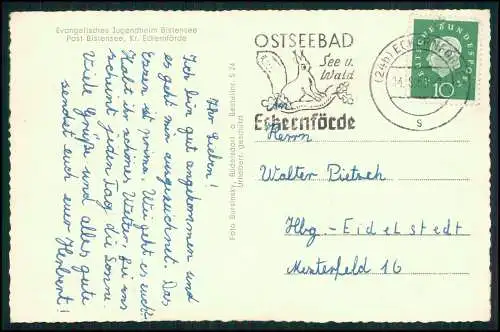 Evangelisches Jugendheim Bistensee
Post Bistensee, Kr. Eckernförde
Ihr Lieben!
Ich bin gut angekommen und
es geht mir ausgezeichnet. Das
Essen ist prima. Wie geht es euch?
Habt ihr schönes Wetter, bei uns
scheint jeden Tag die Sonne.
Viele Grüße und alles gute
sendet euch euer Herbert!
Foto Bursinsky, Büdelsdorf a. Bestellnr. S 24
Urheberr. geschützt
OSTSEEBAD
See u.
Wald
Eckernförde
(24b) ECKERNFÖRDE
s
DEUTSCHE BUNDESPOST
10
An
Herrn
Walter Pietsch
Hbg.-Eidelstedt
Münterfeld 16